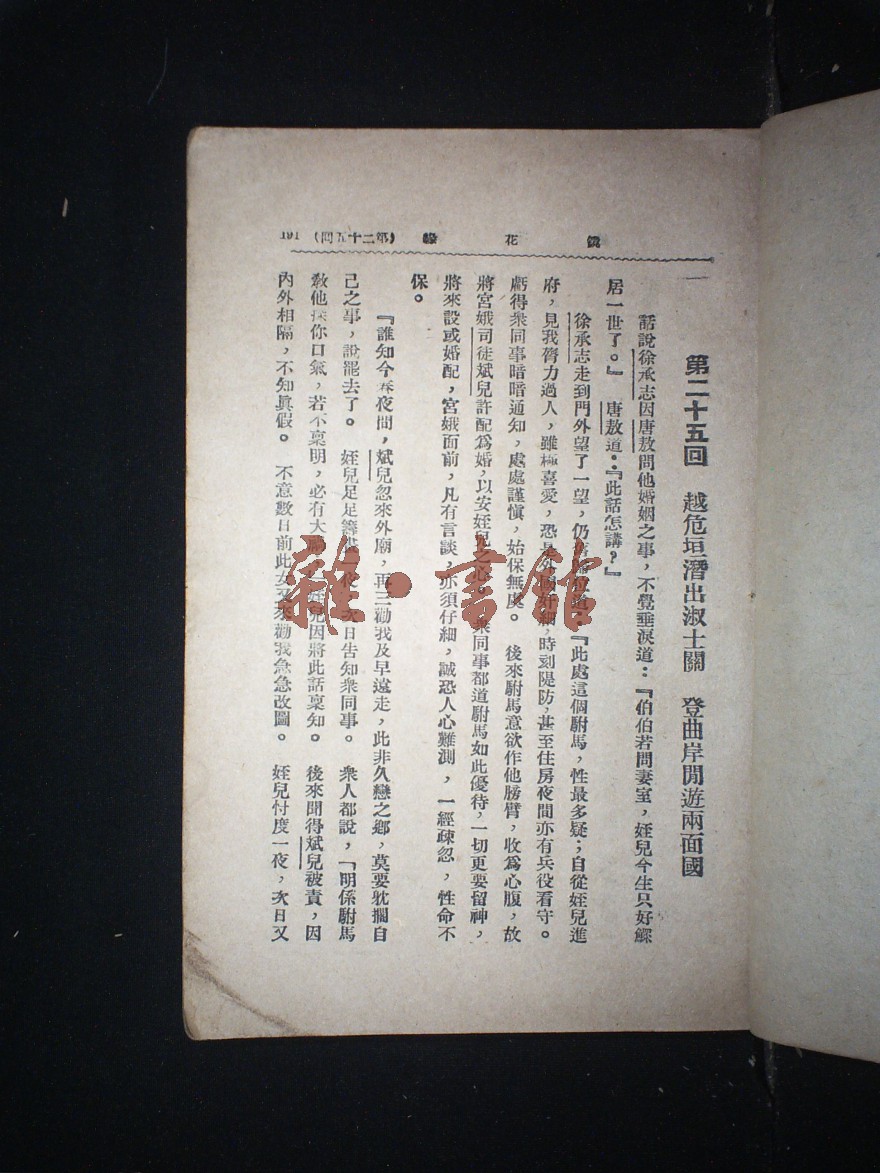 鏡花緣 (第二十五回) 191
第二十五回 越危垣潛出淑士關 登曲岸閒遊兩面國
話說徐承志因唐敖問他婚姻之事，不覺垂淚道：『伯伯若問妻室，姪兒今生只好鰥
居一世了。』 唐敖道：『此話怎講？』
徐承志走到門外望了一望，仍舊道：『此處這個駙馬，性最多疑；自從姪兒進
府，見我膂力過人，雖極喜愛，恐是外國奸細，時刻隄防，甚至住房夜間亦有兵役看守。
虧得衆同事暗暗通知，處處謹愼，始保無虞。 後來駙馬意欲作他膀臂，收爲心腹，故
將宮娥司徒斌兒許配爲婚，以安姪兒之心。衆同事都道駙馬如此優待，一切更要留神，
將來設或婚配，宮娥面前，凡有言談，亦須仔細，誠恐人心難測，一經疎忽，性命不
保。
『誰知今春夜間，斌兒忽來外廟，再三勸我及早遠走，此非久戀之鄉，莫要躭擱自
己之事，說罷去了。 姪兒足足籌畫一夜，次日吿知衆同事。 衆人都說，「明係駙馬
敎他探你口氣，若不稟明，必有大禍。」姪兒因將此話稟知。 後來聞得斌兒被責，因
內外相隔，不知眞假。 不意數日前此女又來勸我急急改圖。 姪兒忖度一夜，次日又
雜·書館